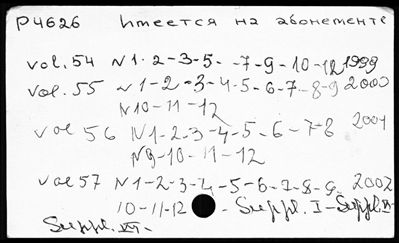 P4626 Имеется на абонементе
vol. 54 N 1-2-3-5- -7-9-10-12 1999
vol. 55 N 1-2-3-4-5-6-7-8-9 2000
N10-11-12
vol 56 N1-2-3-4-5-6-7-8 2001
N9-10-11-12
vol 57 N 1-2-3-4-5-6-7-8-9 2002
10-11-12 - Suppl. I-Suppl.
Suppl. III-